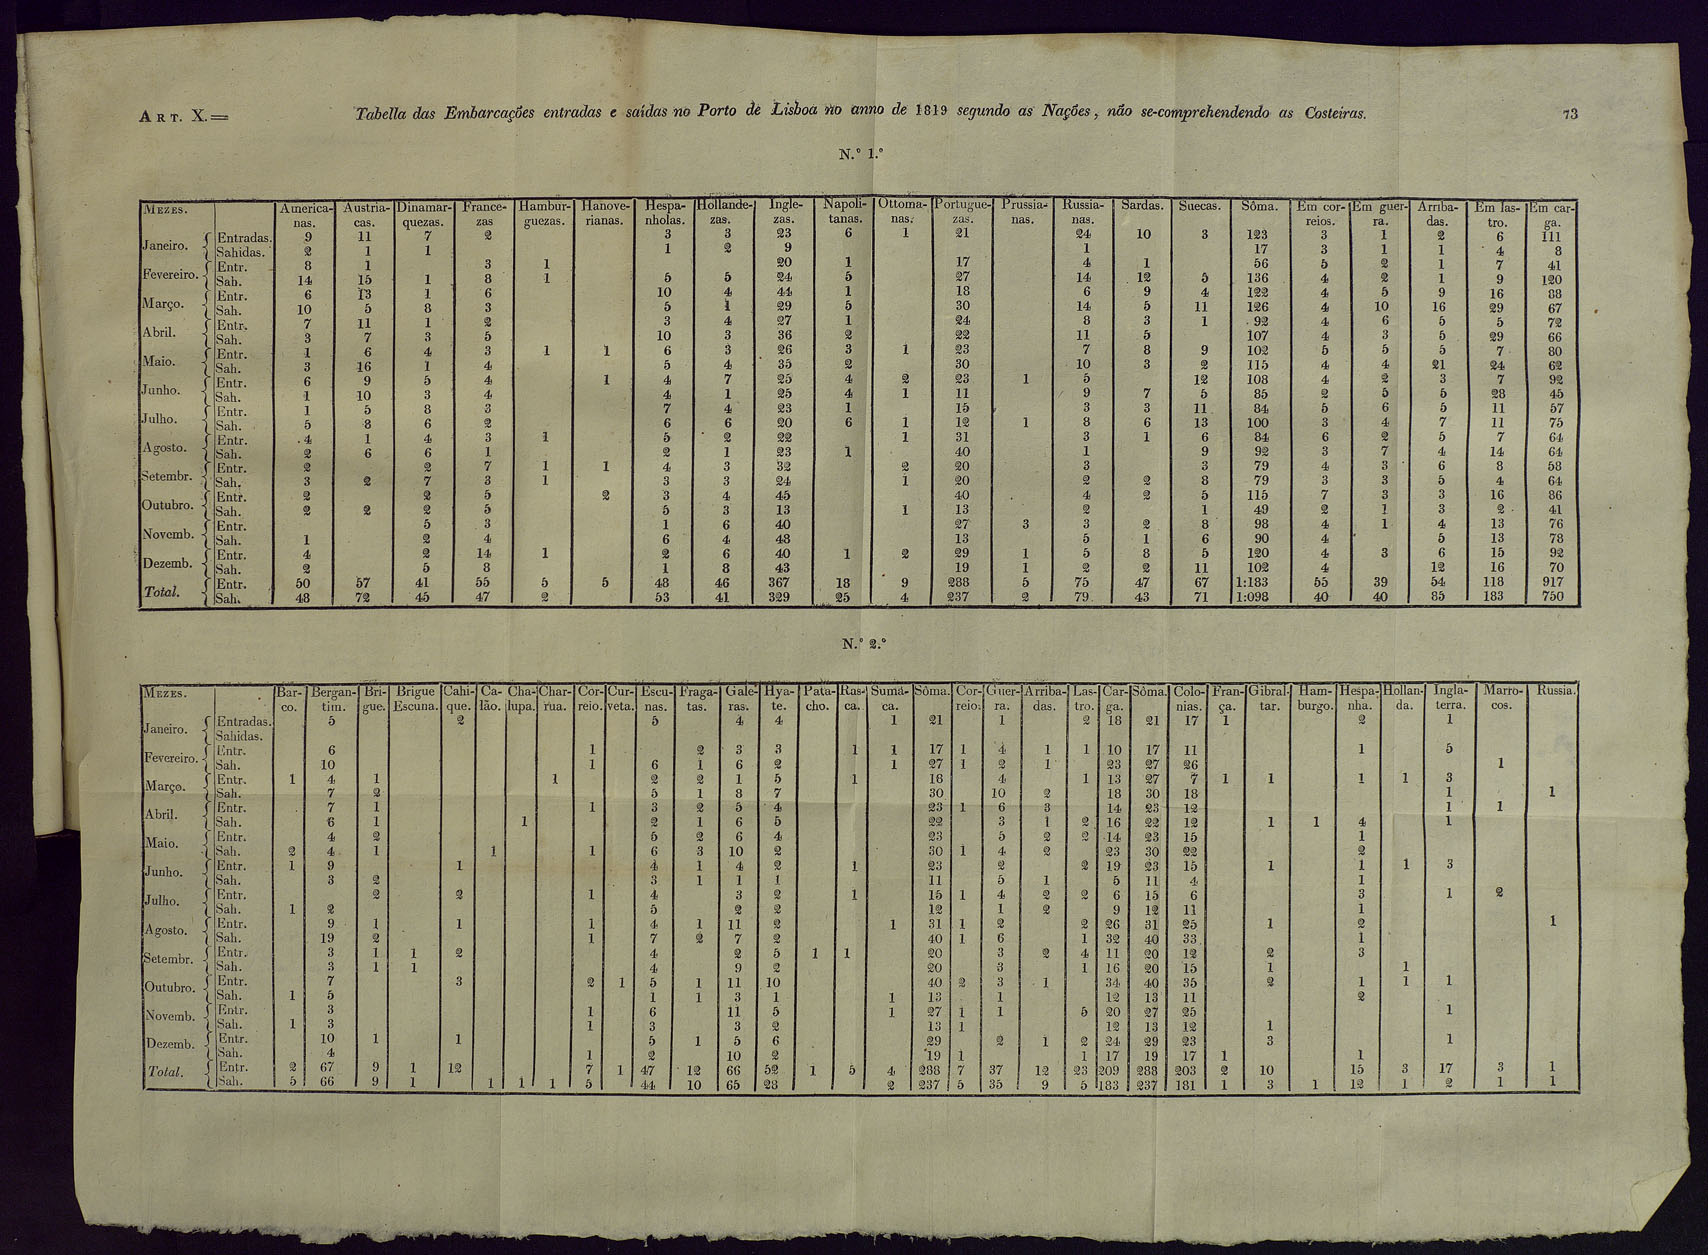 ART. X.= Tabella das Embarcações entradas e saídas no Porto de Lisboa no anno de 1819 segundo as Nações, não se-comprehendendo as Costeiras. 73
N.º 1.º
MEZES. America- Austria- Dinamar- France- Hambur- Hanove- Hespa- Hollande- Ingle- Napoli- Ottoma- Portugue- Prussia- Russia- Sardas. Suecas. Sôma. Em cor- Em guer- Arriba- Em las- Em car-
nas. cas. quezas. zas guezas. rianas. nholas. zas. zas. tanas. nas. zas. nas. nas. reios. ra. das. tro. ga.
Janeiro. { Entradas. 9 11 7 2 3 3 23 6 1 21 24 10 3 123 3 1 2 6 111
Sahidas. 2 1 1 1 2 9 1 17 3 1 1 4 8
Fevereiro. { Entr. 8 1 3 1 20 1 17 4 1 56 5 2 1 7 41
Sah. 14 15 1 8 1 5 5 24 5 27 14 12 5 136 4 2 1 9 120
Março. { Entr. 6 13 1 6 10 4 44 1 18 6 9 4 122 4 5 9 16 88
Sah. 10 5 8 3 5 1 29 5 30 14 5 11 126 4 10 16 29 67
Abril. { Entr. 7 11 1 2 3 4 27 1 24 8 3 1 92 4 6 5 5 72
Sah. 3 7 3 5 10 3 36 2 22 11 5 107 4 3 5 29 66
Maio. { Entr. 1 6 4 3 1 1 6 3 26 3 1 23 7 8 9 102 5 5 5 7 80
Sah. 3 16 1 4 5 4 35 2 30 10 3 2 115 4 4 21 24 62
Junho. { Entr. 6 9 5 4 1 4 7 25 4 2 23 1 5 12 108 4 2 3 7 92
Sah. 1 10 3 4 4 1 25 4 1 11 9 7 5 85 2 5 5 28 45
Julho. { Entr. 1 5 8 3 7 4 23 1 15 3 3 11 84 5 6 5 11 57
Sah. 5 8 6 2 6 6 20 6 1 12 1 8 6 13 100 3 4 7 11 75
Agosto. { Entr. 4 1 4 3 1 5 2 22 1 31 3 1 6 84 6 2 5 7 64
Sah. 2 6 6 1 2 1 23 1 40 1 9 92 3 7 4 14 64
Setembr. { Entr. 2 2 7 1 1 4 3 32 2 20 3 3 79 4 3 6 8 58
Sah. 3 2 7 3 1 3 3 24 1 20 2 2 8 79 3 3 5 4 64
Outubro. { Entr. 2 2 5 2 3 4 45 40 4 2 5 115 7 3 3 16 86
Sah. 2 2 2 5 5 3 13 1 13 2 1 49 2 1 3 2 41
Novemb. { Entr. 5 3 1 6 40 27 3 3 2 8 98 4 1 4 13 76
Sah. 1 2 4 6 4 48 13 5 1 6 90 4 5 13 78
Dezemb. { Entr. 4 2 14 1 2 6 40 1 2 29 1 5 8 5 120 4 3 6 15 92
Sah. 2 5 8 1 8 43 19 1 2 2 11 102 4 12 16 70
Total. { Entr. 50 57 41 55 5 5 48 46 367 18 9 288 5 75 47 67 1:183 55 39 54 118 917
Sah. 48 72 45 47 2 53 41 329 25 4 237 2 79 43 71 1:098 40 40 85 183 750
N.º 2.º
MEZES. Bar- Bergan- Bri- Brigue Cahi- Ca- Cha- Char- Cor- Cur- Escu- Fraga- Gale- Hya- Pata- Ras- Sumá- Sôma. Cor- Guer- Arriba- Las- Car- Sôma. Colo- Fran- Gibral- Ham- Hespa- Hollan- Ingla- Marro- Russia.
co. tim. gue. Escuna. que. lão. lupa. rua. reio. veta. nas. tas. ras. te. cho. ca. ca. reio. ra. das. tro. ga. nias. ça. tar. burgo. nha. da. terra. cos.
Janeiro. { Entradas. 5 2 5 4 4 1 21 1 2 18 21 17 1 2 1
Sahidas.
Fevereiro. { Entr. 6 1 2 3 3 1 1 17 1 4 1 1 10 17 11 1 5
Sah. 10 1 6 1 6 2 1 27 1 2 1 23 27 26 1
Março. { Entr. 1 4 1 1 2 2 1 5 1 18 4 1 13 27 7 1 1 1 1 3
Sah. 7 2 5 1 8 7 30 10 2 18 30 18 1 1
Abril. { Entr. 7 1 1 3 2 5 4 23 1 6 3 14 23 12 1 1
Sah. 6 1 1 2 1 6 5 22 3 1 2 16 22 12 1 1 4 1
Maio. { Entr. 4 2 5 2 6 4 23 5 2 2 14 23 15 1
Sah. 2 4 1 1 1 6 3 10 2 30 1 4 2 23 30 22 2
Junho. { Entr. 1 9 1 4 1 4 2 1 23 2 2 19 23 15 1 1 1 3
Sah. 3 2 3 1 1 1 11 5 1 5 11 4 1
Julho. { Entr. 2 2 1 4 3 2 1 15 1 4 2 2 6 15 6 3 1 2
Sah. 1 2 5 2 2 12 1 2 9 12 11 1
Agosto. { Entr. 9 1 1 1 4 1 11 2 1 31 1 2 2 26 31 25 1 2 1
Sah. 19 2 1 7 2 7 2 40 1 6 1 32 40 33 1
Setembr. { Entr. 3 1 1 2 4 2 5 1 1 20 3 2 4 11 20 12 2 3
Sah. 3 1 1 4 9 2 20 3 1 16 20 15 1 1
Outubro. { Entr. 7 3 2 1 5 1 11 10 40 2 3 1 34 40 35 2 1 1 1
Sah. 1 5 1 1 3 1 1 13 1 12 13 11 2
Novemb. { Entr. 3 1 6 11 5 1 27 1 1 5 20 27 25 1
Sah. 1 3 1 3 3 2 13 1 12 13 12 1
Dezemb. { Entr. 10 1 1 5 1 5 6 29 2 1 2 24 29 23 3 1
Sah. 4 1 2 10 2 19 1 1 17 19 17 1 1
Total. { Entr. 2 67 9 1 12 7 1 47 12 66 52 1 5 4 288 7 37 12 23 209 288 203 2 10 15 3 17 3 1
Sah. 5 66 9 1 1 1 1 5 44 10 65 28 2 237 5 35 9 5 183 237 181 1 3 1 12 1 2 1 1